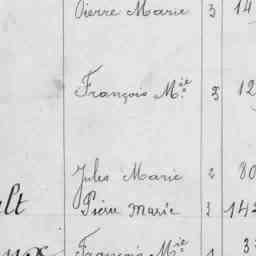 Pierre Marie 3 14
François M.ie 3 12
Jules Marie 2 80
ult Pierre Marie 3 142
François M.ie 1 3